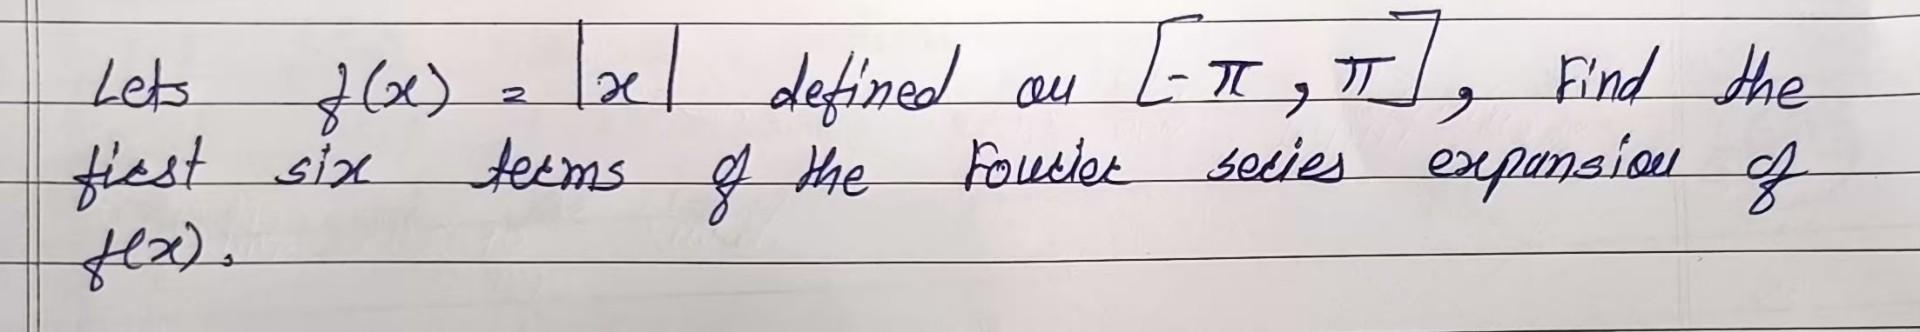 Lets f(x) = |x| defined on [-π, π], Find the
first six terms of the Fourier series expansion of
f(x).